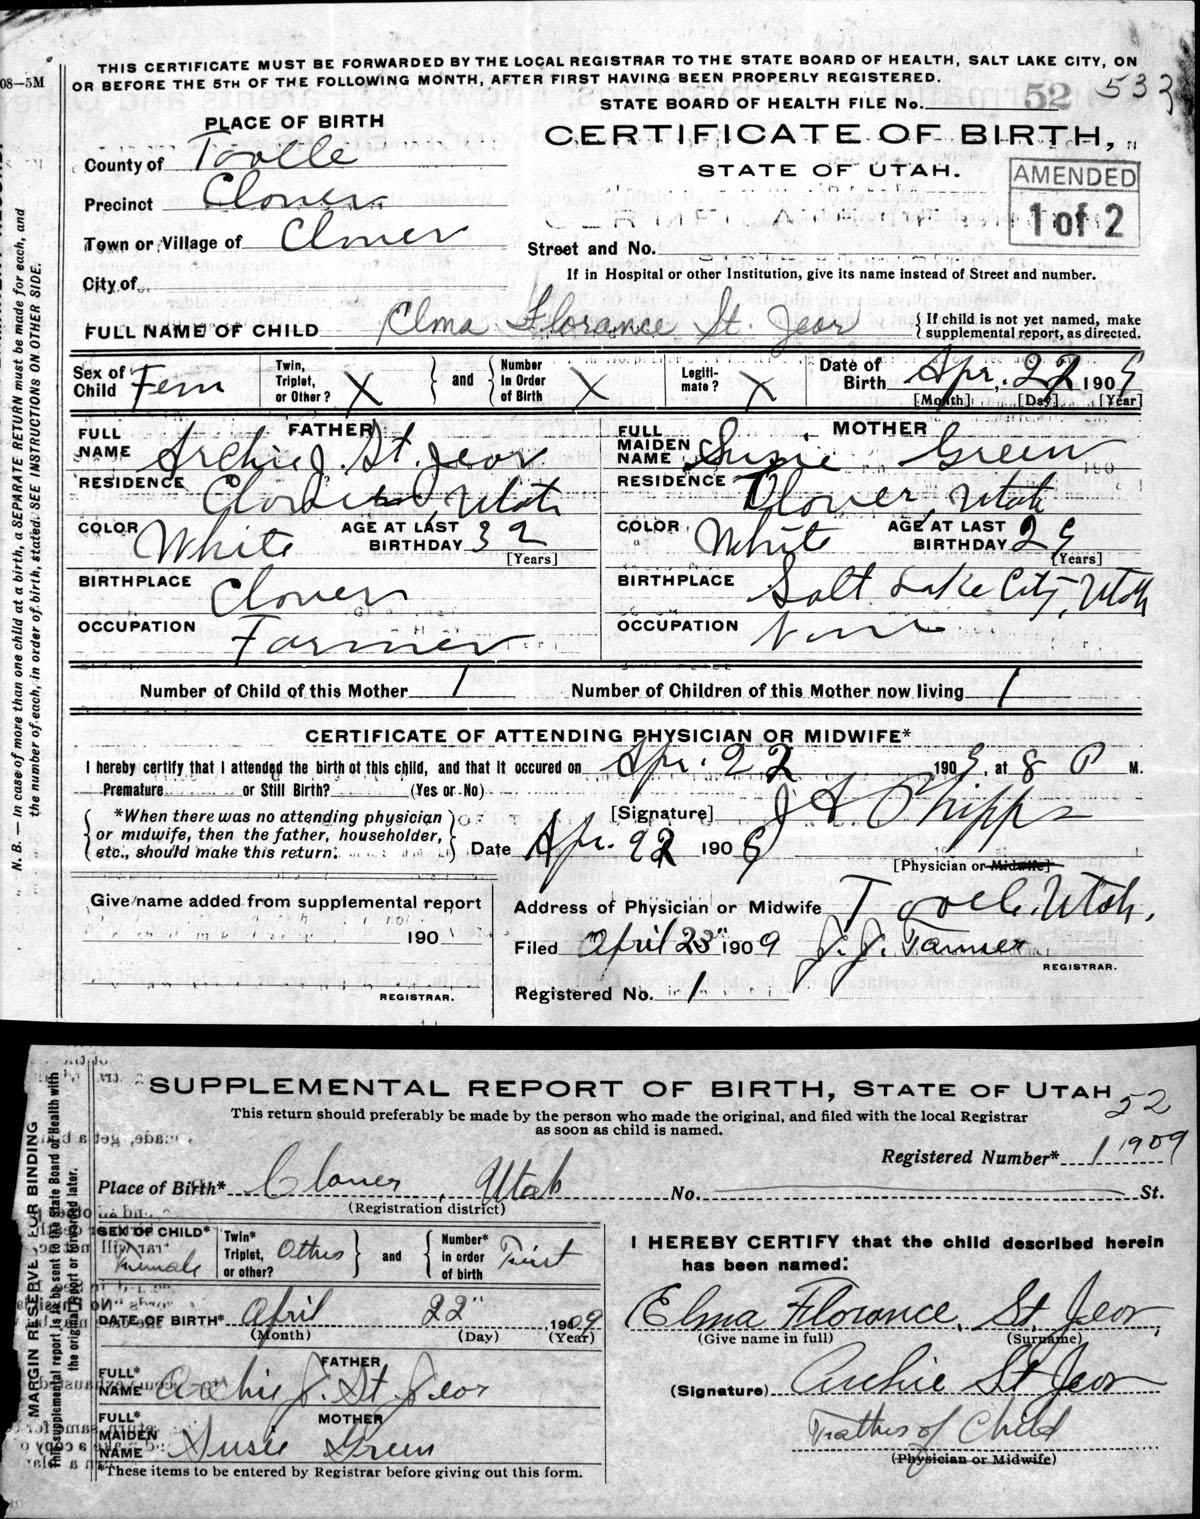 THIS CERTIFICATE MUST BE FORWARDED BY THE LOCAL REGISTRAR TO THE STATE BOARD OF HEALTH, SALT LAKE CITY, ON
OR BEFORE THE 5TH OF THE FOLLOWING MONTH, AFTER FIRST HAVING BEEN PROPERLY REGISTERED.
08—5M
STATE BOARD OF HEALTH FILE No. 52 533
PLACE OF BIRTH
CERTIFICATE OF BIRTH,
County of Tooele
STATE OF UTAH.
AMENDED
1 of 2
Precinct Clover
Town or Village of Clover
Street and No.
City of
If in Hospital or other Institution, give its name instead of Street and number.
FULL NAME OF CHILD Elma Florance St. Jeor
{ If child is not yet named, make
supplemental report, as directed.
Sex of Child Fem
Twin, Triplet, or Other? X } and { Number in Order of Birth X
Legiti-mate? X
Date of Birth Apr. 22 1909
[Month] [Day] [Year]
FATHER
FULL NAME Archie J. St. Jeor
RESIDENCE Clover, Utah
COLOR White AGE AT LAST BIRTHDAY 32
[Years]
BIRTHPLACE Clover
OCCUPATION Farmer
MOTHER
FULL MAIDEN NAME Susie Green
RESIDENCE Clover, Utah
COLOR White AGE AT LAST BIRTHDAY 29
[Years]
BIRTHPLACE Salt Lake City, Utah
OCCUPATION None
Number of Child of this Mother 1 Number of Children of this Mother now living 1
CERTIFICATE OF ATTENDING PHYSICIAN OR MIDWIFE*
I hereby certify that I attended the birth of this child, and that it occured on Apr. 22 1909, at 8 P M.
Premature or Still Birth? (Yes or No)
{ *When there was no attending physician
or midwife, then the father, householder,
etc., should make this return. }
[Signature] J A Phipps
Date Apr. 22 1909
[Physician or Midwife]
Give name added from supplemental report
190
REGISTRAR.
Address of Physician or Midwife Tooele, Utah.
Filed April 23" 1909 J. J. Tanner
REGISTRAR.
Registered No. 1
N. B.—In case of more than one child at a birth, a SEPARATE RETURN must be made for each, and
the number of each, in order of birth, stated. SEE INSTRUCTIONS ON OTHER SIDE.
SUPPLEMENTAL REPORT OF BIRTH, STATE OF UTAH
52
This return should preferably be made by the person who made the original, and filed with the local Registrar
as soon as child is named.
Registered Number* 1 1909
Place of Birth* Clover, Utah No. St.
(Registration district)
SEX OF CHILD* Female
Twin* Triplet, or other? Other } and { Number* in order of birth First
DATE OF BIRTH* April 22" 1909
(Month) (Day) (Year)
FATHER
FULL* NAME Archie J. St. Jeor
MOTHER
FULL* MAIDEN NAME Susie Green
*These items to be entered by Registrar before giving out this form.
I HEREBY CERTIFY that the child described herein
has been named:
Elma Florance, St. Jeor,
(Give name in full) (Surname)
(Signature) Archie St Jeor
Father of Child
(Physician or Midwife)
MARGIN RESERVE FOR BINDING
This supplemental report is to be sent to the State Board of Health with
the original report or forwarded later.